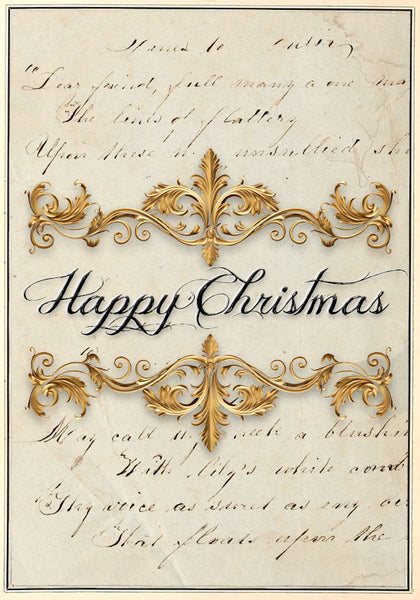 Lines to
"Dear friend, full many a one ma
The lines of flattery
Upon these unsullied sh
Happy Christmas
May call a blushi
With lily's white comb
Thy voice as sweet as any
That floats upon the